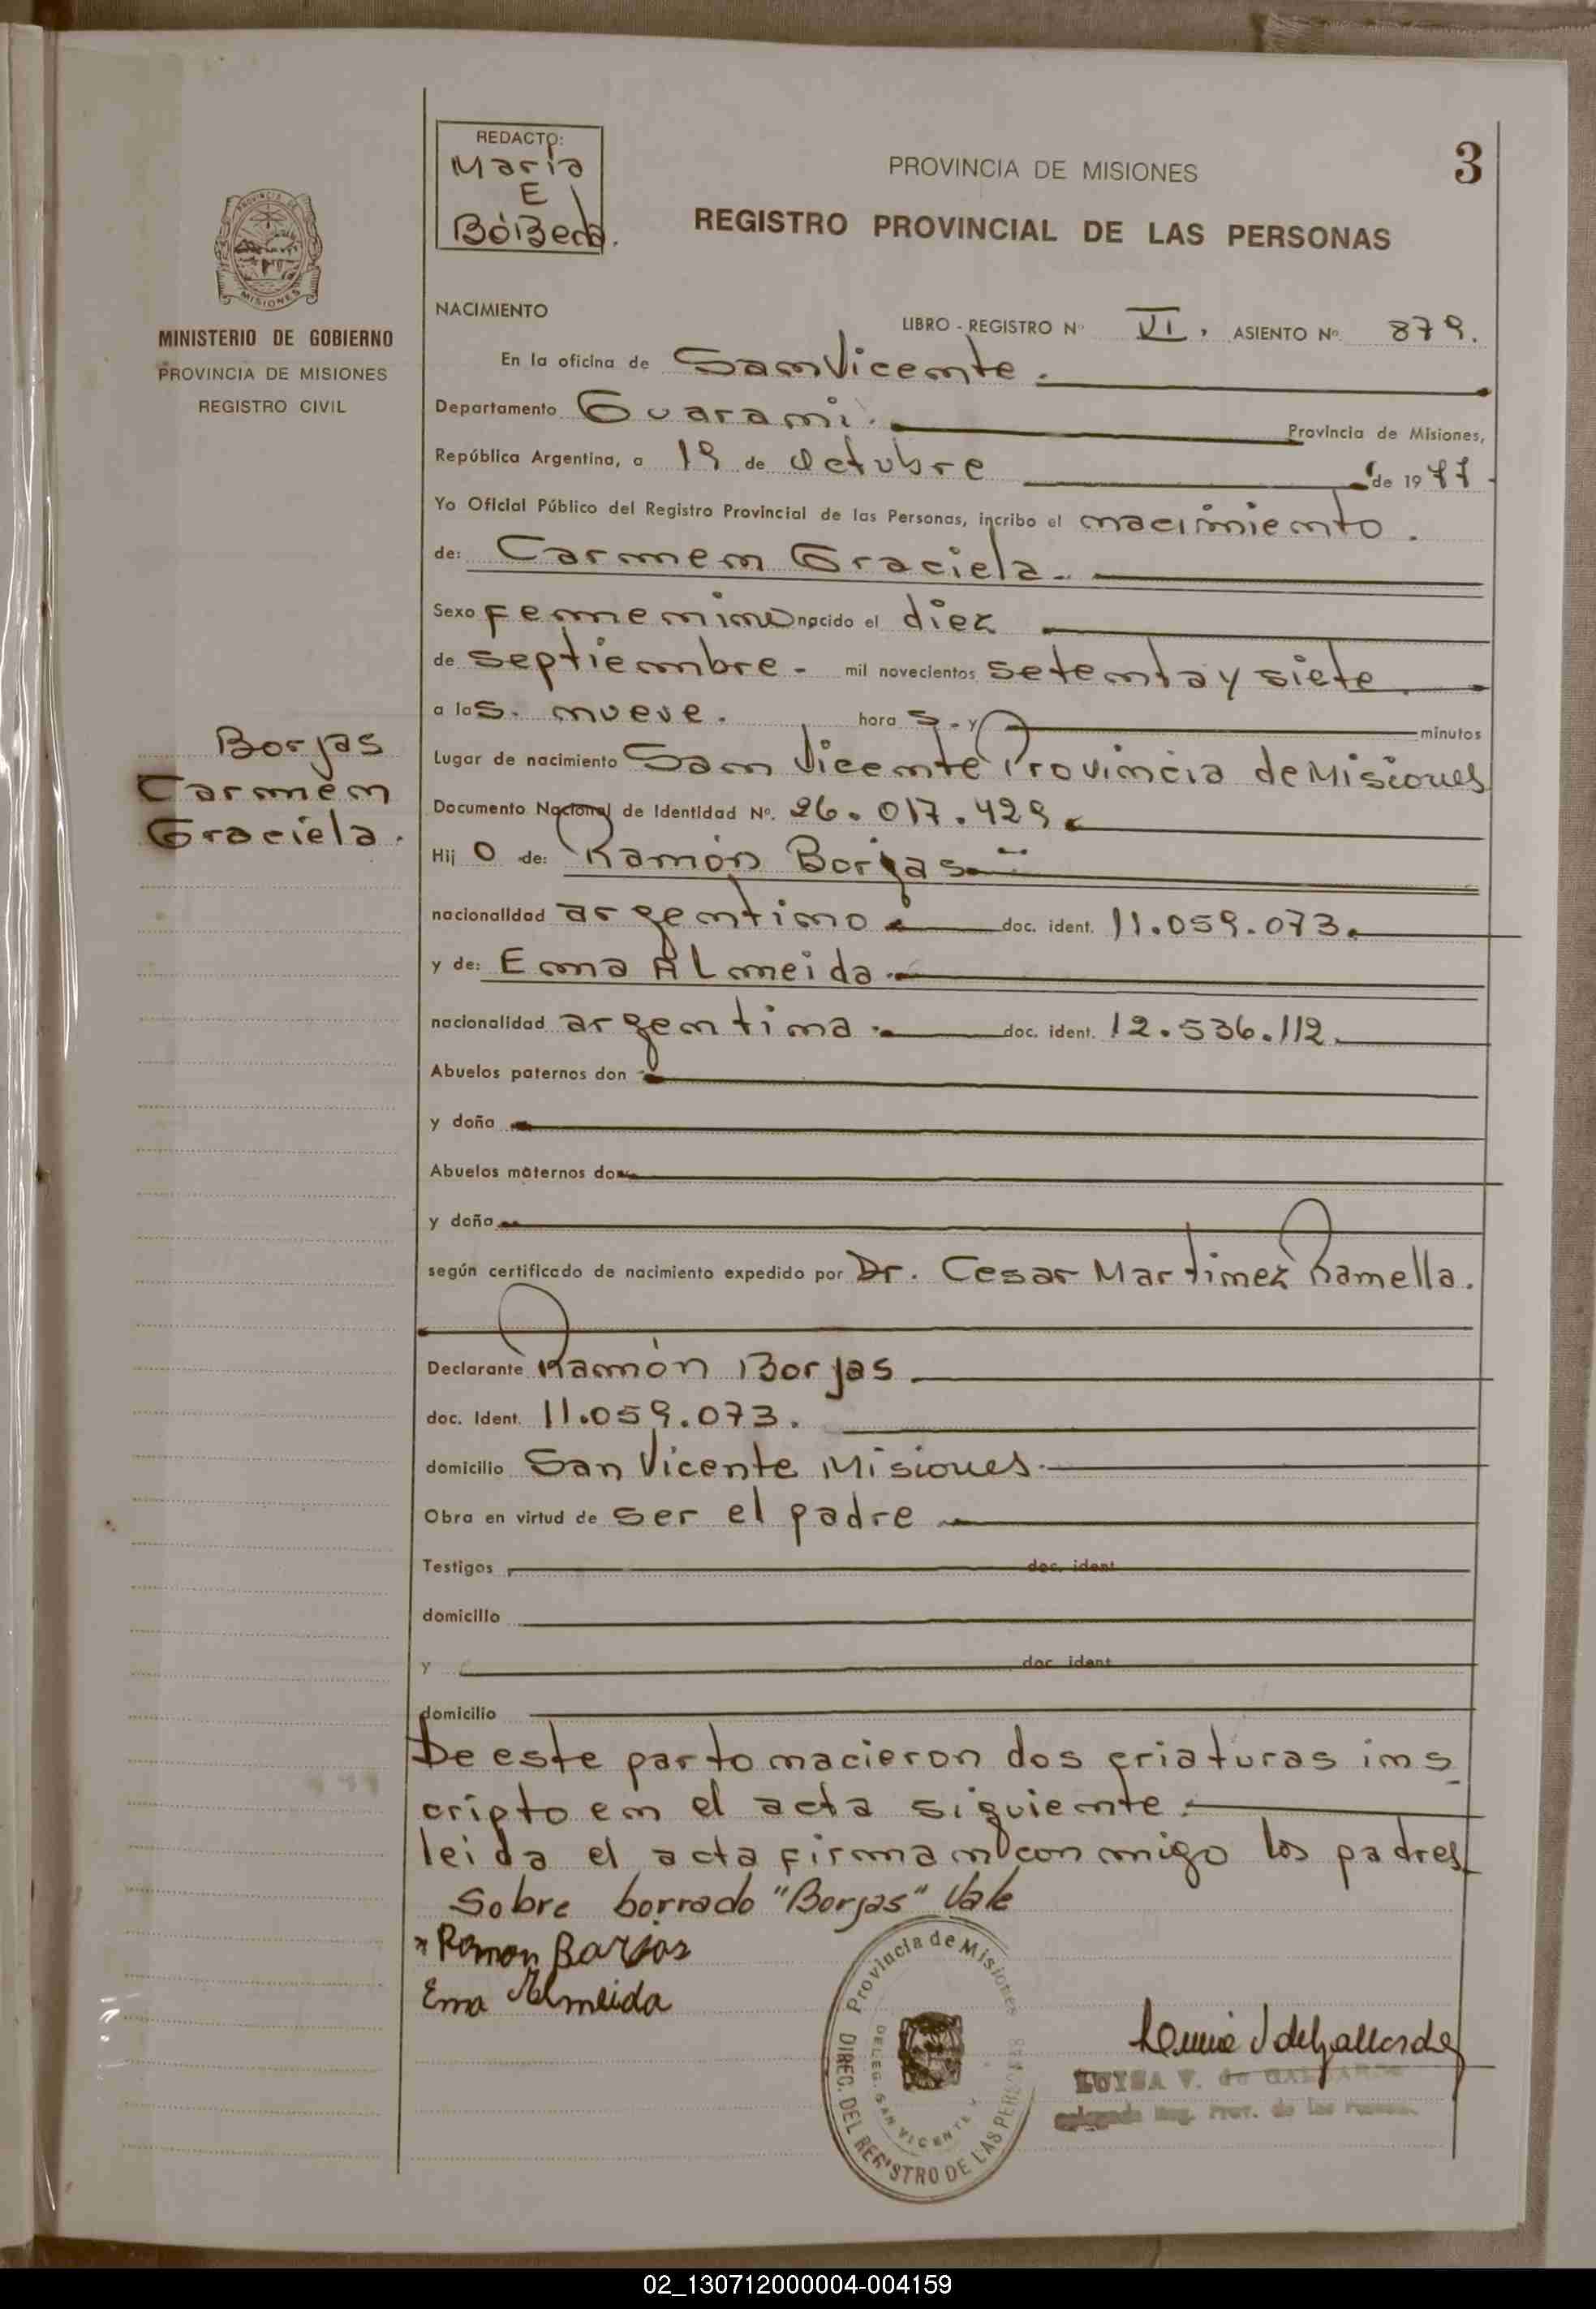 REDACTO:
Maria
E
BóBeda.
3
PROVINCIA DE MISIONES
REGISTRO PROVINCIAL DE LAS PERSONAS
PROVINCIA DE
MISIONES
MINISTERIO DE GOBIERNO
PROVINCIA DE MISIONES
REGISTRO CIVIL
NACIMIENTO
LIBRO - REGISTRO Nº VI, ASIENTO Nº 879.
En la oficina de San Vicente.
Departamento Guarani. Provincia de Misiones,
República Argentina, a 19 de Octubre de 1977
Yo Oficial Público del Registro Provincial de las Personas, incribo el nacimiento.
de: Carmen Graciela.
Sexo femenino nacido el diez
de septiembre - mil novecientos setenta y siete
a las. nueve. hora s. y minutos
Borjas
Carmen
Graciela.
Lugar de nacimiento San Vicente Provincia de Misiones
Documento Nacional de Identidad Nº. 26.017.429
Hij o de: Ramón Borjas
nacionalidad argentino doc. ident. 11.059.073.
y de: Ema ALmeida.
nacionalidad argentina. doc. ident. 12.536.112
Abuelos paternos don
y doña
Abuelos maternos don
y doña
según certificado de nacimiento expedido por Dr. Cesar Martinez Ramella.
Declarante Ramón Borjas
doc. Ident. 11.059.073.
domicilio San Vicente Misiones
Obra en virtud de ser el padre
Testigos doc. ident
domicilio
y doc. ident
domicilio
De este parto nacieron dos criaturas ins
cripto en el acta siguiente.
leida el acta firman con migo los padres
Sobre borrado "Borjas" Vale
Ramon Barjas
Ema Almeida
Provincia de Misiones
DIREC. DEL REGISTRO DE LAS PERSONAS
DELEG. SAN VICENTE
LUISA V. de
Reg. Prov. de las
02_130712000004-004159